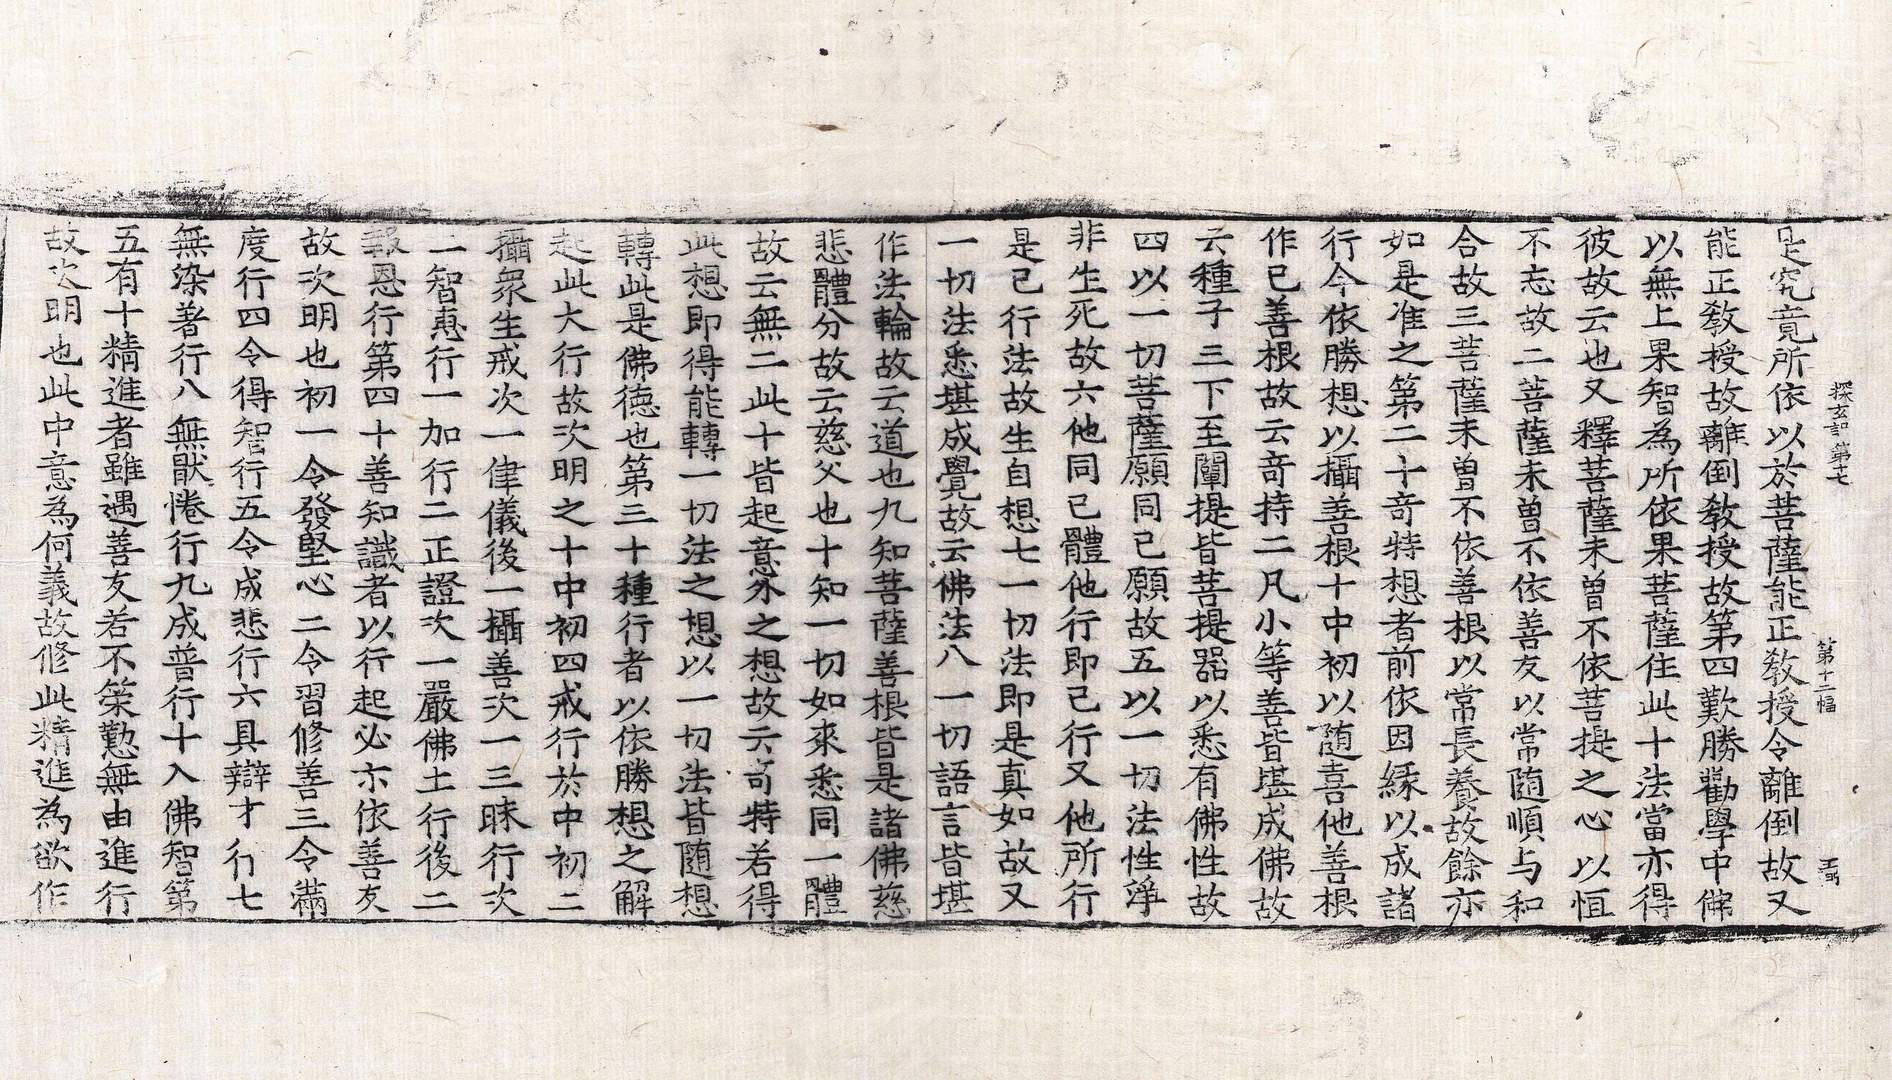 探玄記第十七　第十二幅　王
是究竟所依以於菩薩能正教授令離倒故又
能正教授故離倒教授故第四歎勝勸學中佛
以無上果智為所依果菩薩住此十法當亦得
彼故云也又釋菩薩未曾不依菩提之心以恒
不忘故二菩薩未曾不依善友以常隨順与和
合故三菩薩未曾不依善根以常長養故餘亦
如是准之第二十奇特想者前依因緣以成諸
行今依勝想以攝善根十中初以随喜他善根
作己善根故云奇持二凡小等善皆堪成佛故
云種子三下至闡提皆菩提器以悉有佛性故
四以一切菩薩願同己願故五以一切法性淨
非生死故六他同己體他行即己行又他所行
是己行法故生自想七一切法即是真如故又
一切法悉堪成覺故云佛法八一切語言皆堪
作法輪故云道也九知菩薩善根皆是諸佛慈
悲體分故云慈父也十知一切如來悉同一體
故云無二此十皆起意外之想故云奇特若得
此想即得能轉一切法之想以一切法皆随想
轉此是佛德也第三十種行者以依勝想之解
起此大行故次明之十中初四戒行於中初二
攝衆生戒次一律儀後一攝善次一三昧行次
一智惠行一加行二正證次一嚴佛土行後二
報恩行第四十善知識者以行起必亦依善友
故次明也初一令發堅心二令習修善三令滿
度行四令得智行五令成悲行六具辯才行七
無染著行八無猒惓行九成普行十入佛智第
五有十精進者雖遇善友若不策懃無由進行
故次明也此中意為何義故修此精進為欲作